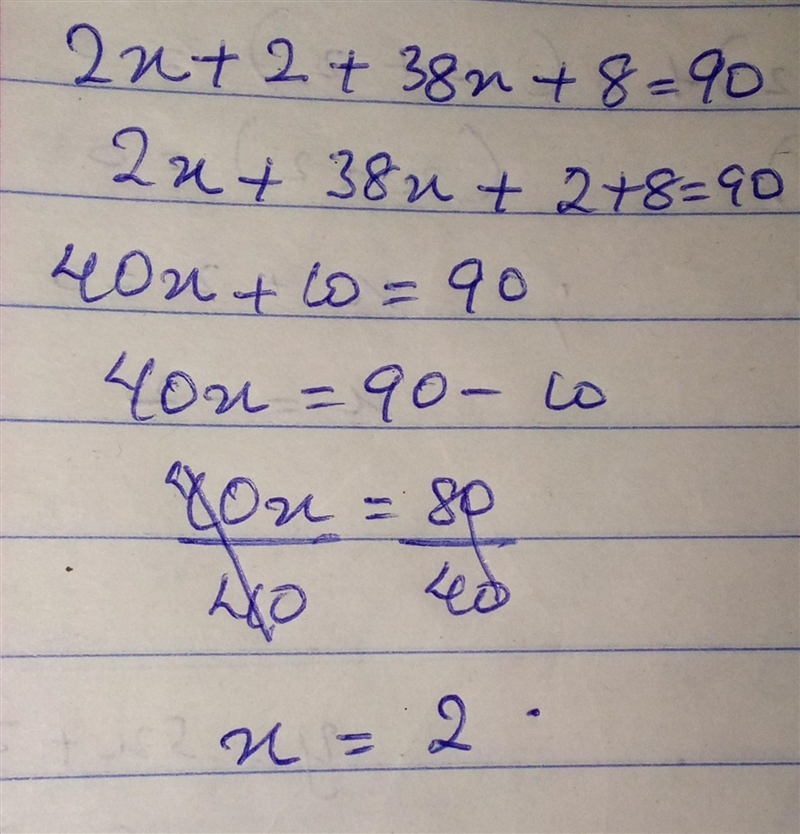 2x + 2 + 38x + 8 = 90
2x + 38x + 2 + 8 = 90
40x + 10 = 90
40x = 90 - 10
40x = 80
40 40
x = 2 .